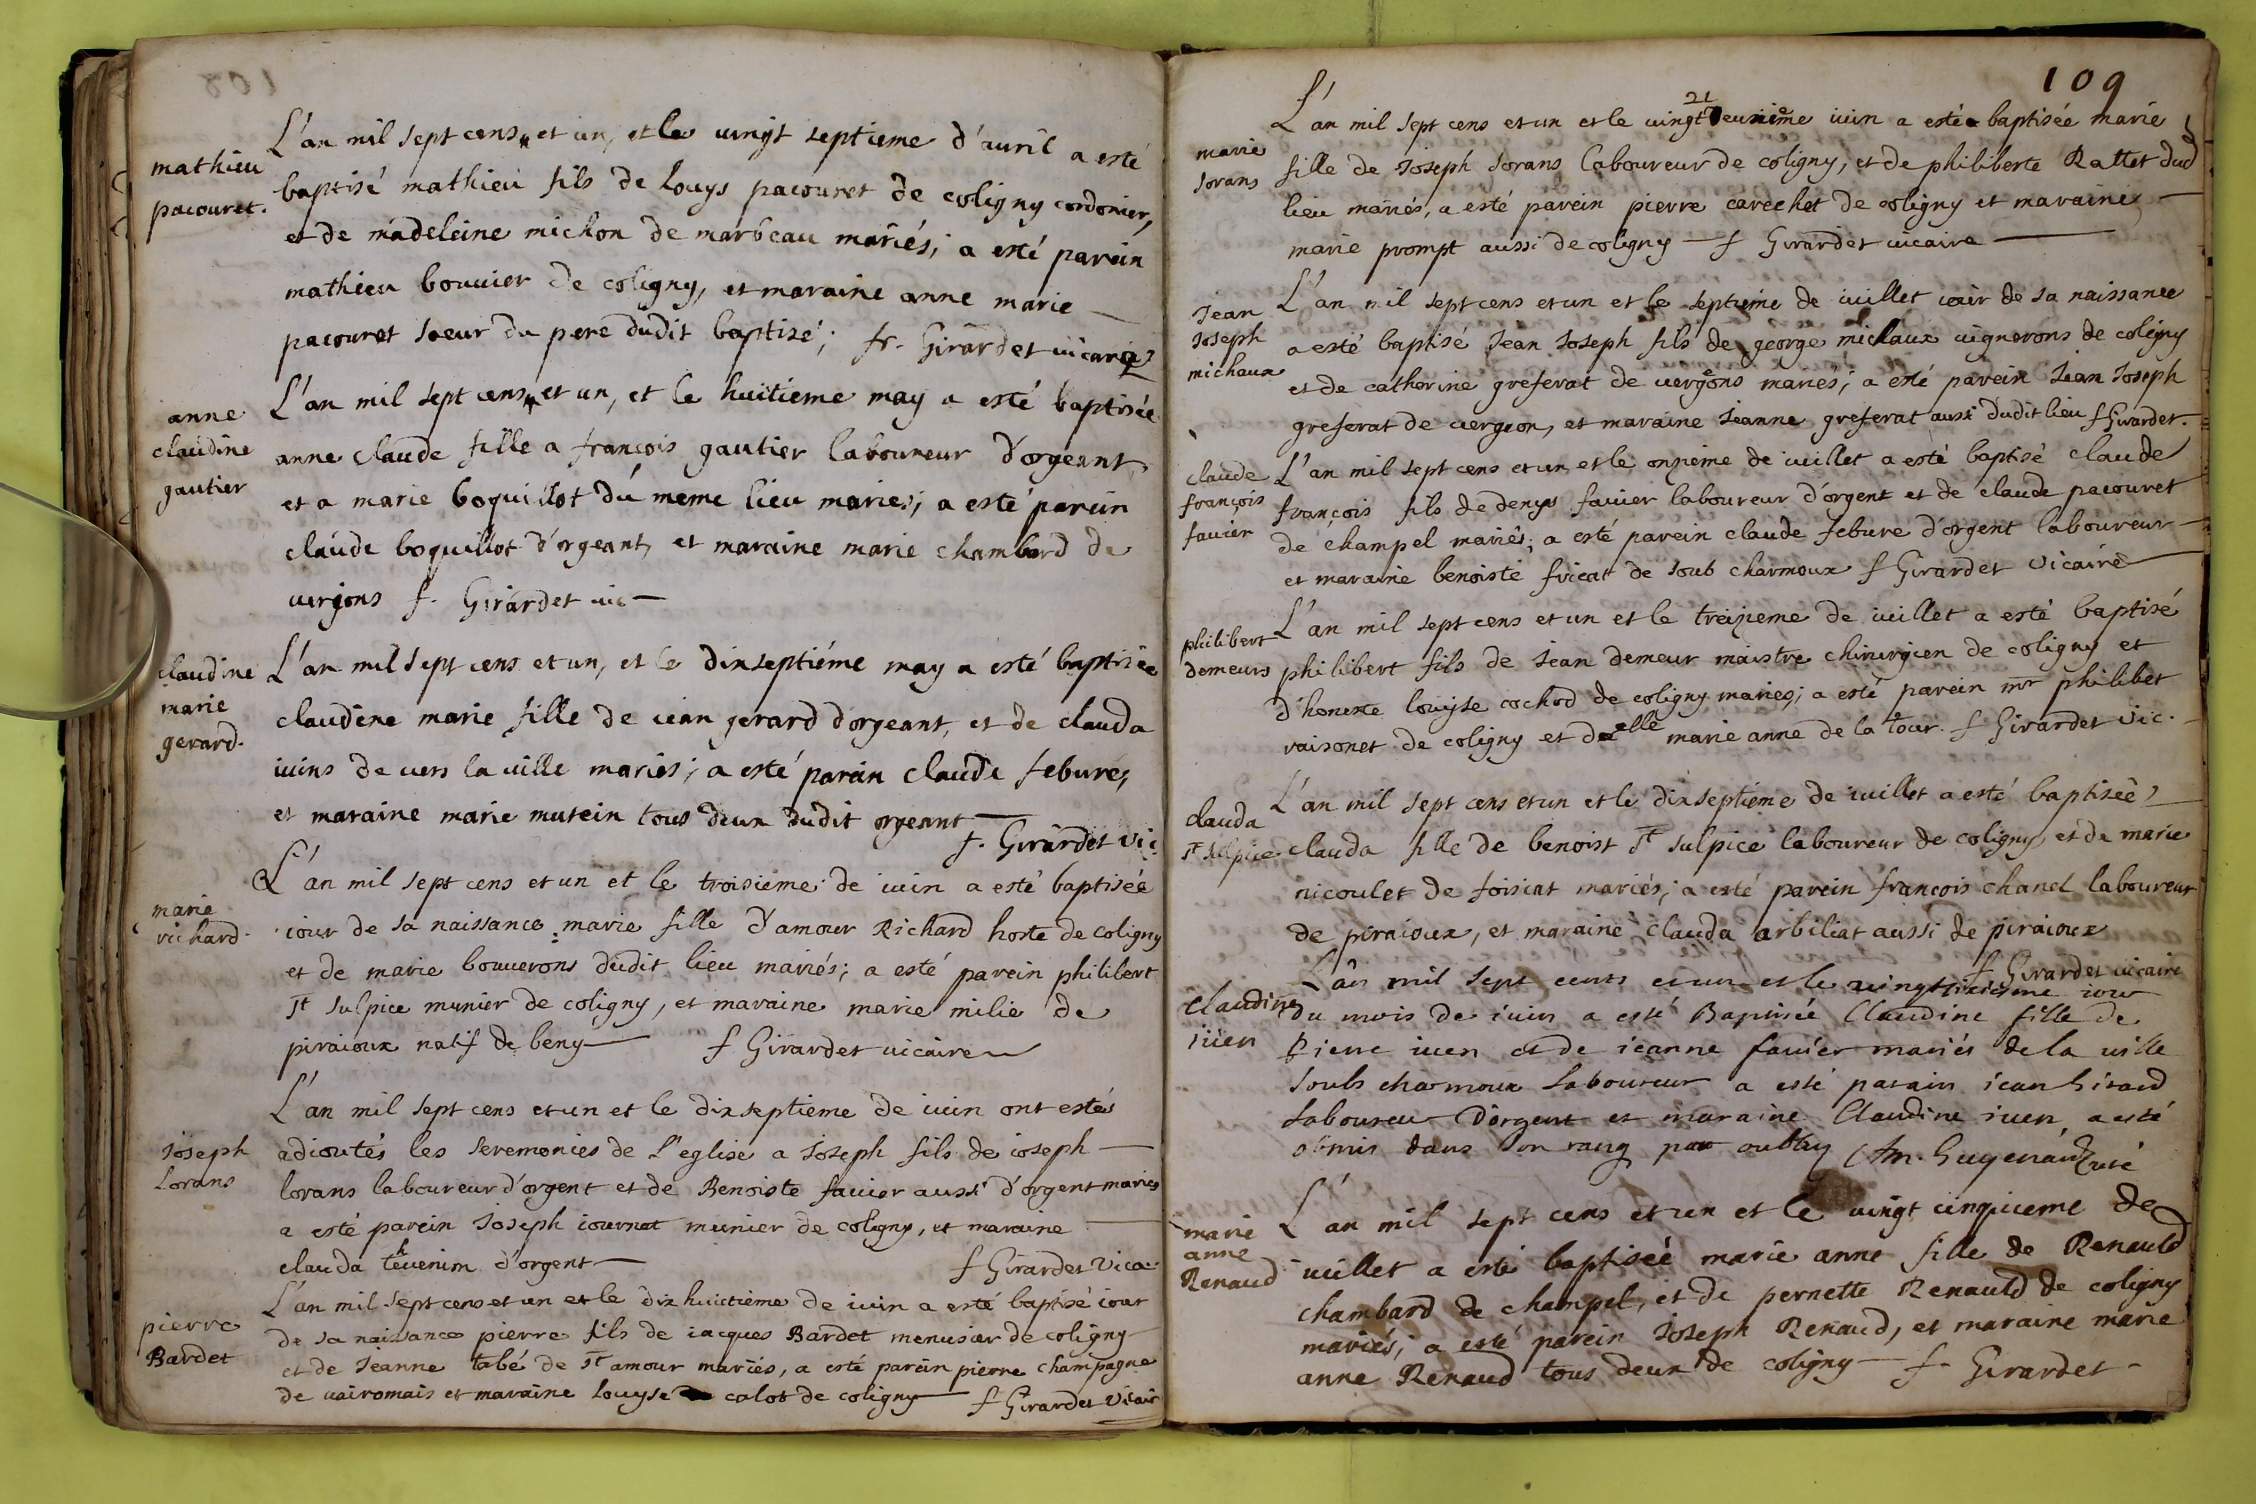 mathieu
pacouret.
L'an mil sept cens et un, et le vingt septieme d'auril a esté
baptisé mathieu fils de Louys pacouret de coligny cordonier,
et de madeleine michon de marbeau mariés; a esté parein
mathieu bouuier de coligny, et maraine anne marie
pacouret soeur du pere dudit baptisé; fr. Girardet uicaire
anne
claudine
gautier
L'an mil sept cens et un, et le huitieme may a esté baptisée
anne claude fille a françois gautier laboureur d'orgeant,
et a marie boquillot du meme lieu mariés; a esté parein
claude boquillot d'orgeant, et maraine marie chambard de
uergons f. Girardet uic
claudine
marie
gerard.
L'an mil sept cens et un, et le dixseptiéme may a esté baptisée
claudine marie fille de iean gerard d'orgeant, et de clauda
iuins de uers la uille mariés; a esté parein claude febure,
et maraine marie mutein tous deux dudit orgeant
f. Girardet vic
marie
richard.
L'an mil sept cens et un et le troisieme de iuin a esté baptisée
iour de sa naissance marie fille d'amour Richard hoste de coligny
et de marie bouuerons dudit lieu mariés; a esté parein philibert
st sulpice munier de coligny, et maraine marie milie de
piraioux natif de beny f Girardet uicaire
Joseph
Lorans
L'an mil sept cens et un et le dixseptieme de iuin ont estés
adioutés les seremonies de l'eglise a Joseph fils de ioseph
lorans laboureur d'orgent et de Benoiste fauier aussi d'orgent mariés
a esté parein Joseph iournet munier de coligny, et maraine
clauda theuenim d'orgent f Girardet Vica.
pierre
Bardet
L'an mil sept cens et un et le dixhuictieme de iuin a esté baptisé iour
de sa naissance pierre fils de iacques Bardet menusier de coligny
et de Jeanne tabé de st amour mariés, a esté parein pierre champagne
de uairomais et maraine Louyse calot de coligny f Girardet Vicair
109
marie
Lorans
L'an mil sept cens et un et le uingt 21 eunième iuin a esté baptisée marie
fille de Joseph Lorans laboureur de coligny, et de philiberte Rattet dud
lieu mariés, a esté parein pierre carechet de coligny et maraine
marie prompt aussi de coligny f Girardet uicaire
Jean
Joseph
michaux
L'an mil sept cens et un et le septieme de iuillet iour de sa naissance
a esté baptisé Jean Joseph fils de george michaux uignerons de coligny
et de catherine greferat de uergons mariés; a esté parein Jean Joseph
greferat de uergeon, et maraine Jeanne greferat aussi dudit lieu f Girardet.
claude
françois
fauier
L'an mil sept cens et un et le onzieme de iuillet a esté baptisé claude
françois fils de denys fauier laboureur d'orgent et de claude pacouret
de champel mariés; a esté parein claude febure d'orgent laboureur
et maraine benoiste fricat de soub charmoux f Girardet Vicaire
philibert
demeurs
L'an mil sept cens et un et le treizieme de iuillet a esté baptisé
philibert fils de Jean demeur maistre chirurgien de coligny et
d'honeste louyse cochod de coligny mariés; a esté parein mr philibet
raisonet de coligny et delle marie anne de la tour. f Girardet Vic.
clauda
st sulpice
L'an mil sept cens et un et le dixseptieme de iuillet a esté baptiseé
clauda fille de benoist st sulpice laboureur de coligny, et de marie
nicoulet de foisiat mariés; a esté parein françois chanel laboureur
de piraioux, et maraine clauda arbiliat aussi de piraioux
f Girardet uicaire
Claudine
iüen
L'an mil sept cents et un et le uingtsixieme iour
du mois de iuin a esté Baptiseé Claudine fille de
Pierre iuen et de ieanne fauier mariés de la uille
souls charmoux Laboureur a esté parain iean Girard
Laboureur D'orgent et maraine Claudine iuen, a esté
obmis dans son rang par oubly An. huguenaud Curé
marie
anne
Renaud
L'an mil sept cens et un et le vingt cinquieme de
iuillet a esté baptiseé marie anne fille de Renauld
chambard de champel, et de pernette Renauld de coligny
mariés; a esté parein Joseph Renaud, et maraine marie
anne Renaud tous deux de coligny f. Girardet